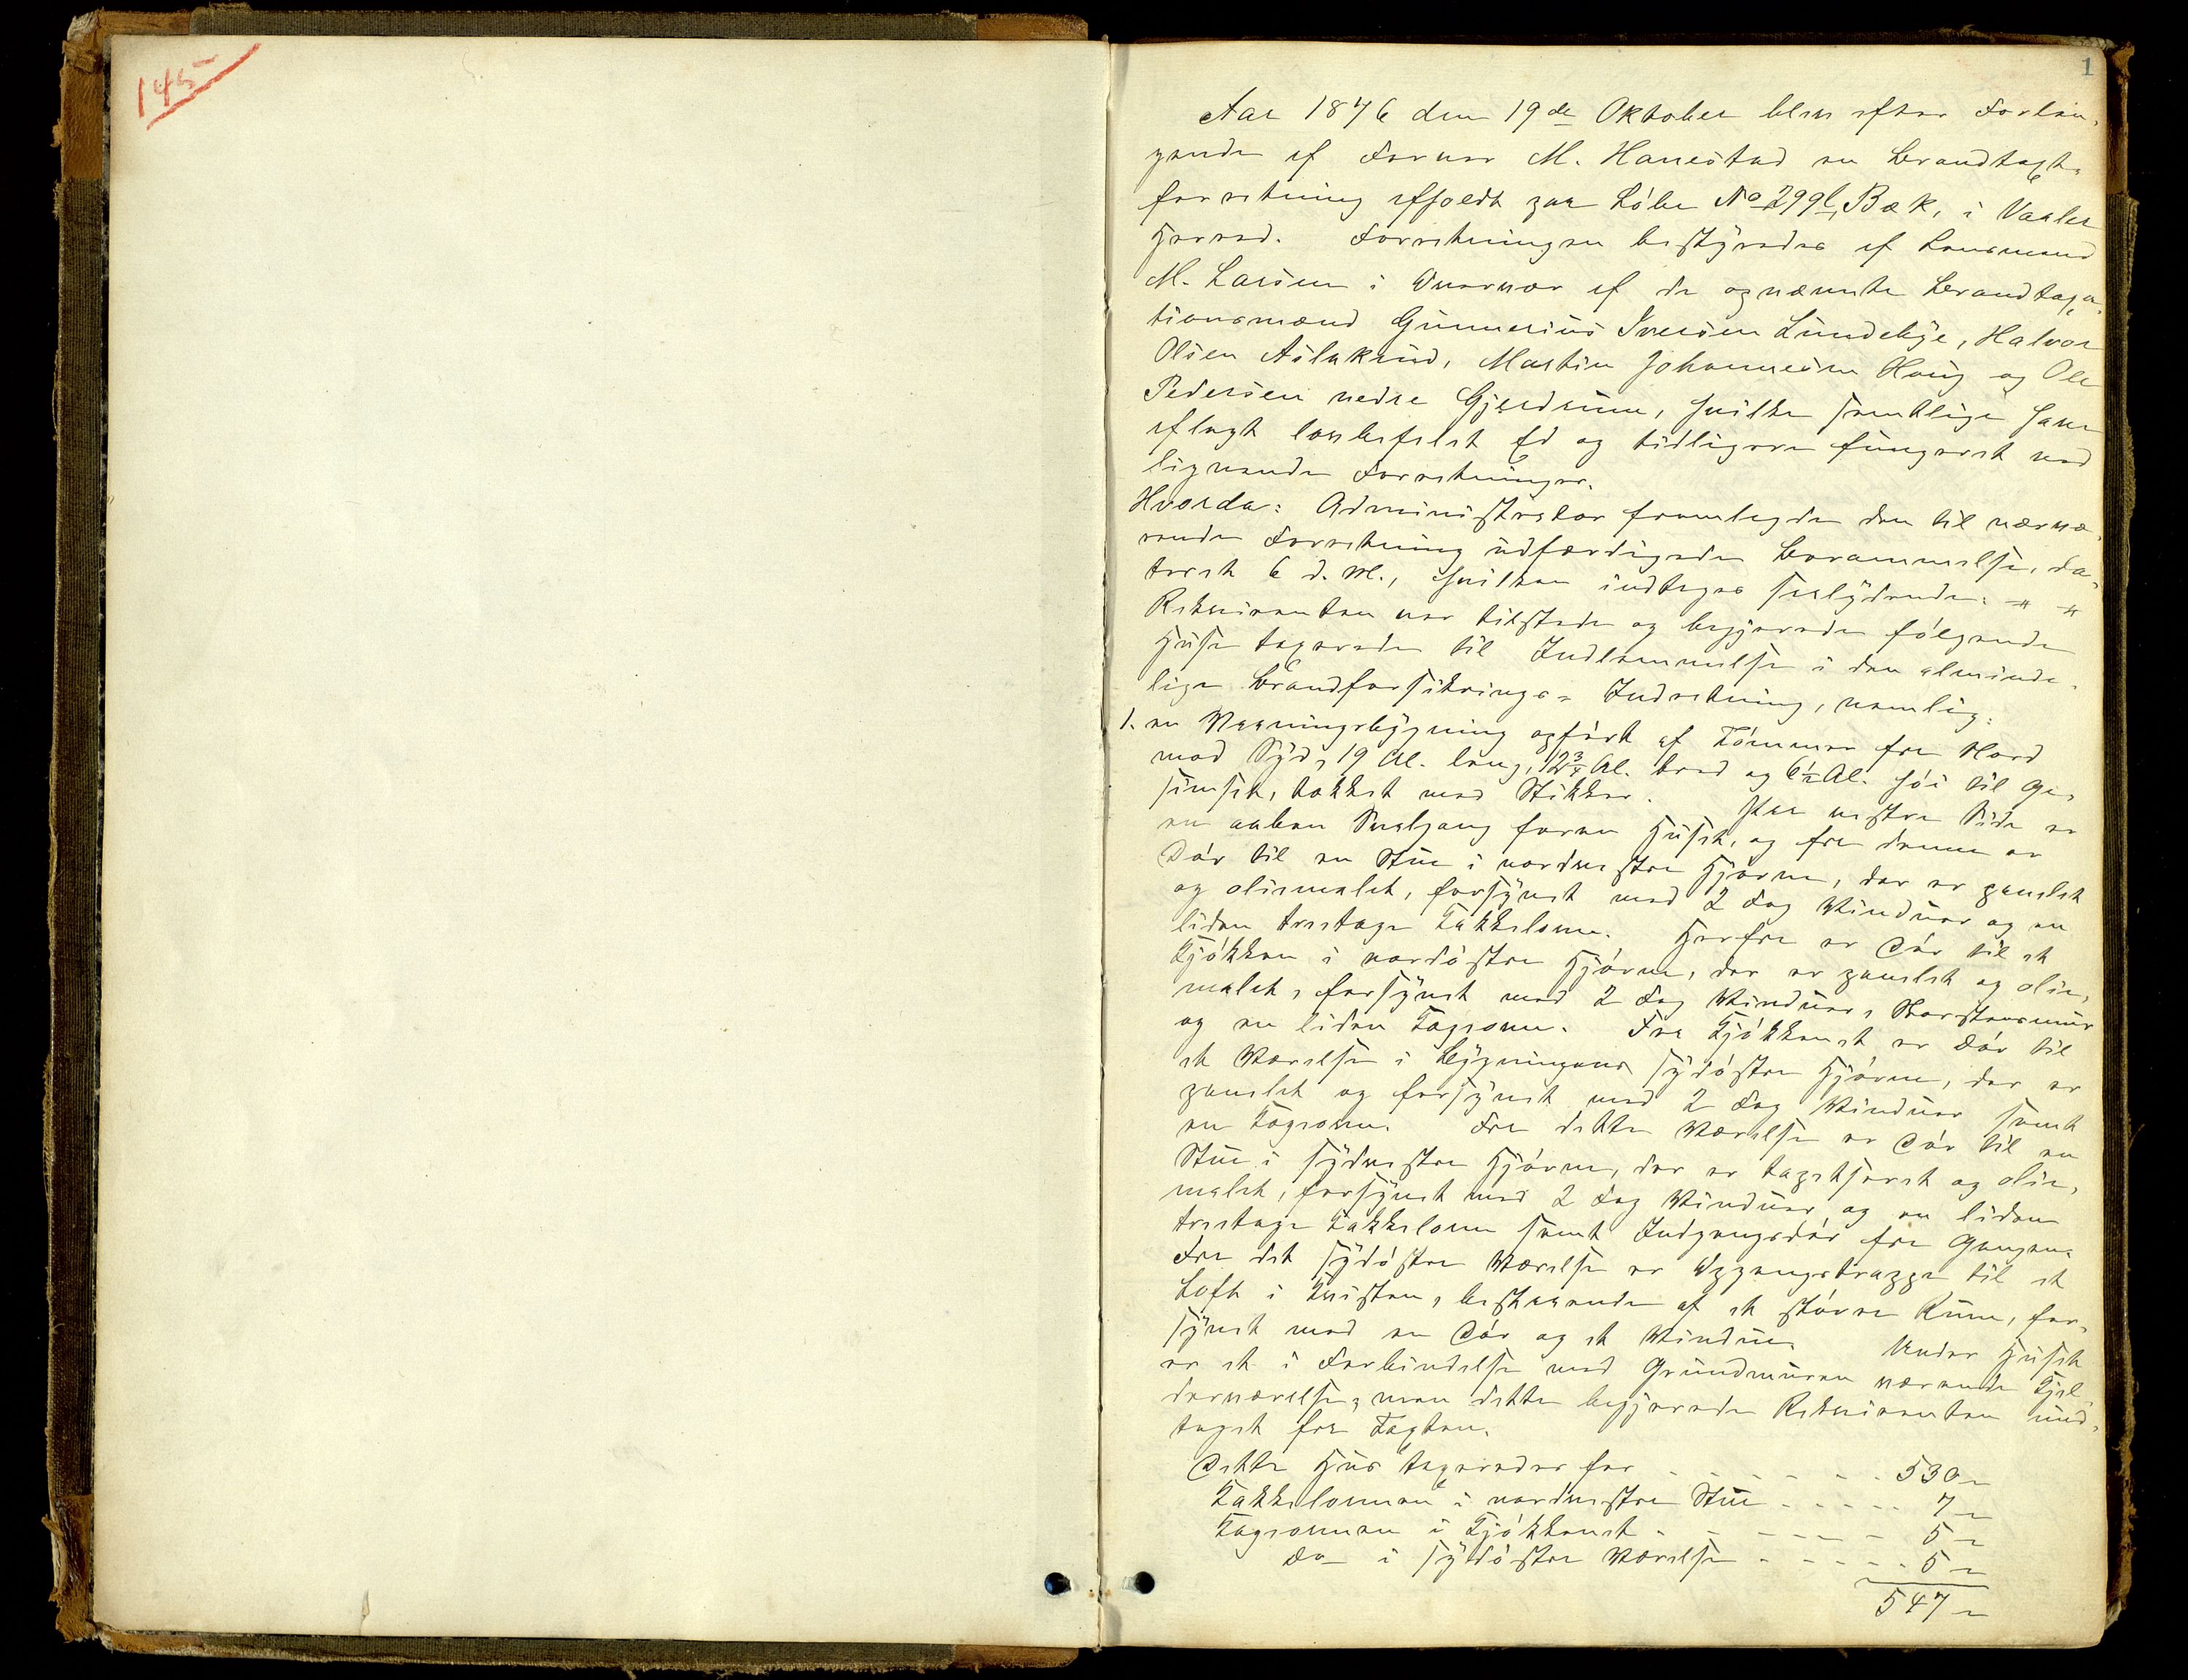 145
1
Aar 1876 den 19de Oktober blev efter Forlan,
gende af Farver M. Hanestad en Brandtaxt,
forretning afholdt paa Løbe No 299b, Bæk, i Vaaler
Herred. Forretningen bestyredes af Lensmand
M. Larsen i Nærvær af de opnævnte Brandtaxa,
tionsmænd Gunnerius Iversen Lundebye, Halvor
Olsen Aslakrud, Martin Johannesen Haug og Ole
Pedersen nedre Gjerdrum, hvilke samtlige have
aflagt lovbefalet Ed og tidligere fungeret ved
lignende Forretninger.
Hvorda: Administrator fremlagde den til nærvæ,
rende Forretning udfærdigede Berammelse, da,
teret 6 d. M., hvilken indtages saalydende: " "
Rekvirenten var tilstede og begjærede følgende
Huse taxerede til Indlemmelse i den alminde,
lige Brandforsikrings-Indretning, nemlig:
1. en Vaaningsbygning opført af Tømmer fra Nord
mod Syd, 19 Al. lang, 12¾ Al. bred og 6½ Al. høi til Ge,
simset, tækket med Stikker. Paa vestre Side er
en aaben Svalgang foran Huset, og fra denne er
Dør til en Stue i nordvestre Hjørne, der er panelet
og oliemalet, forsynet med 2 Fag Vinduer og en
liden treetages Kakkelovn. Herfra er Dør til et
Kjøkken i nordøstre Hjørne, der er panelet og olie,
malet, forsynet med 2 Fag Vinduer, Skorstensmur
og en liden Kogeovn. Fra Kjøkkenet er Dør til
et Værelse i Bygningens sydøstre Hjørne, der er
panelet og forsynet med 2 Fag Vinduer samt
en Kogeovn. Fra dette Værelse er Dør til en
Stue i sydvestre Hjørne, der er tapetseret og olie,
malet, forsynet med 2 Fag Vinduer og en liden
treetages Kakkelovn samt Indgangsdør fra Gangen.
Fra det sydøstre Værelse er Opgangstrappe til et
Loft i Kvisten, bestaaende af et større Rum, for,
synet med en Dør og et Vindue. Under Huset
er et i Forbindelse med Grundmuren værende Kjel,
derværelse, men dette begjærede Rekvirenten und,
taget fra Taxten.
Dette Hus taxeredes for - - - - - - 530 "
Kakkelovnen i nordvestre Stue - - - - - 7 "
Kogeovnen i Kjøkkenet - - - - - 5 "
Do i sydøstre Værelse - - - - - 5 "
547 "